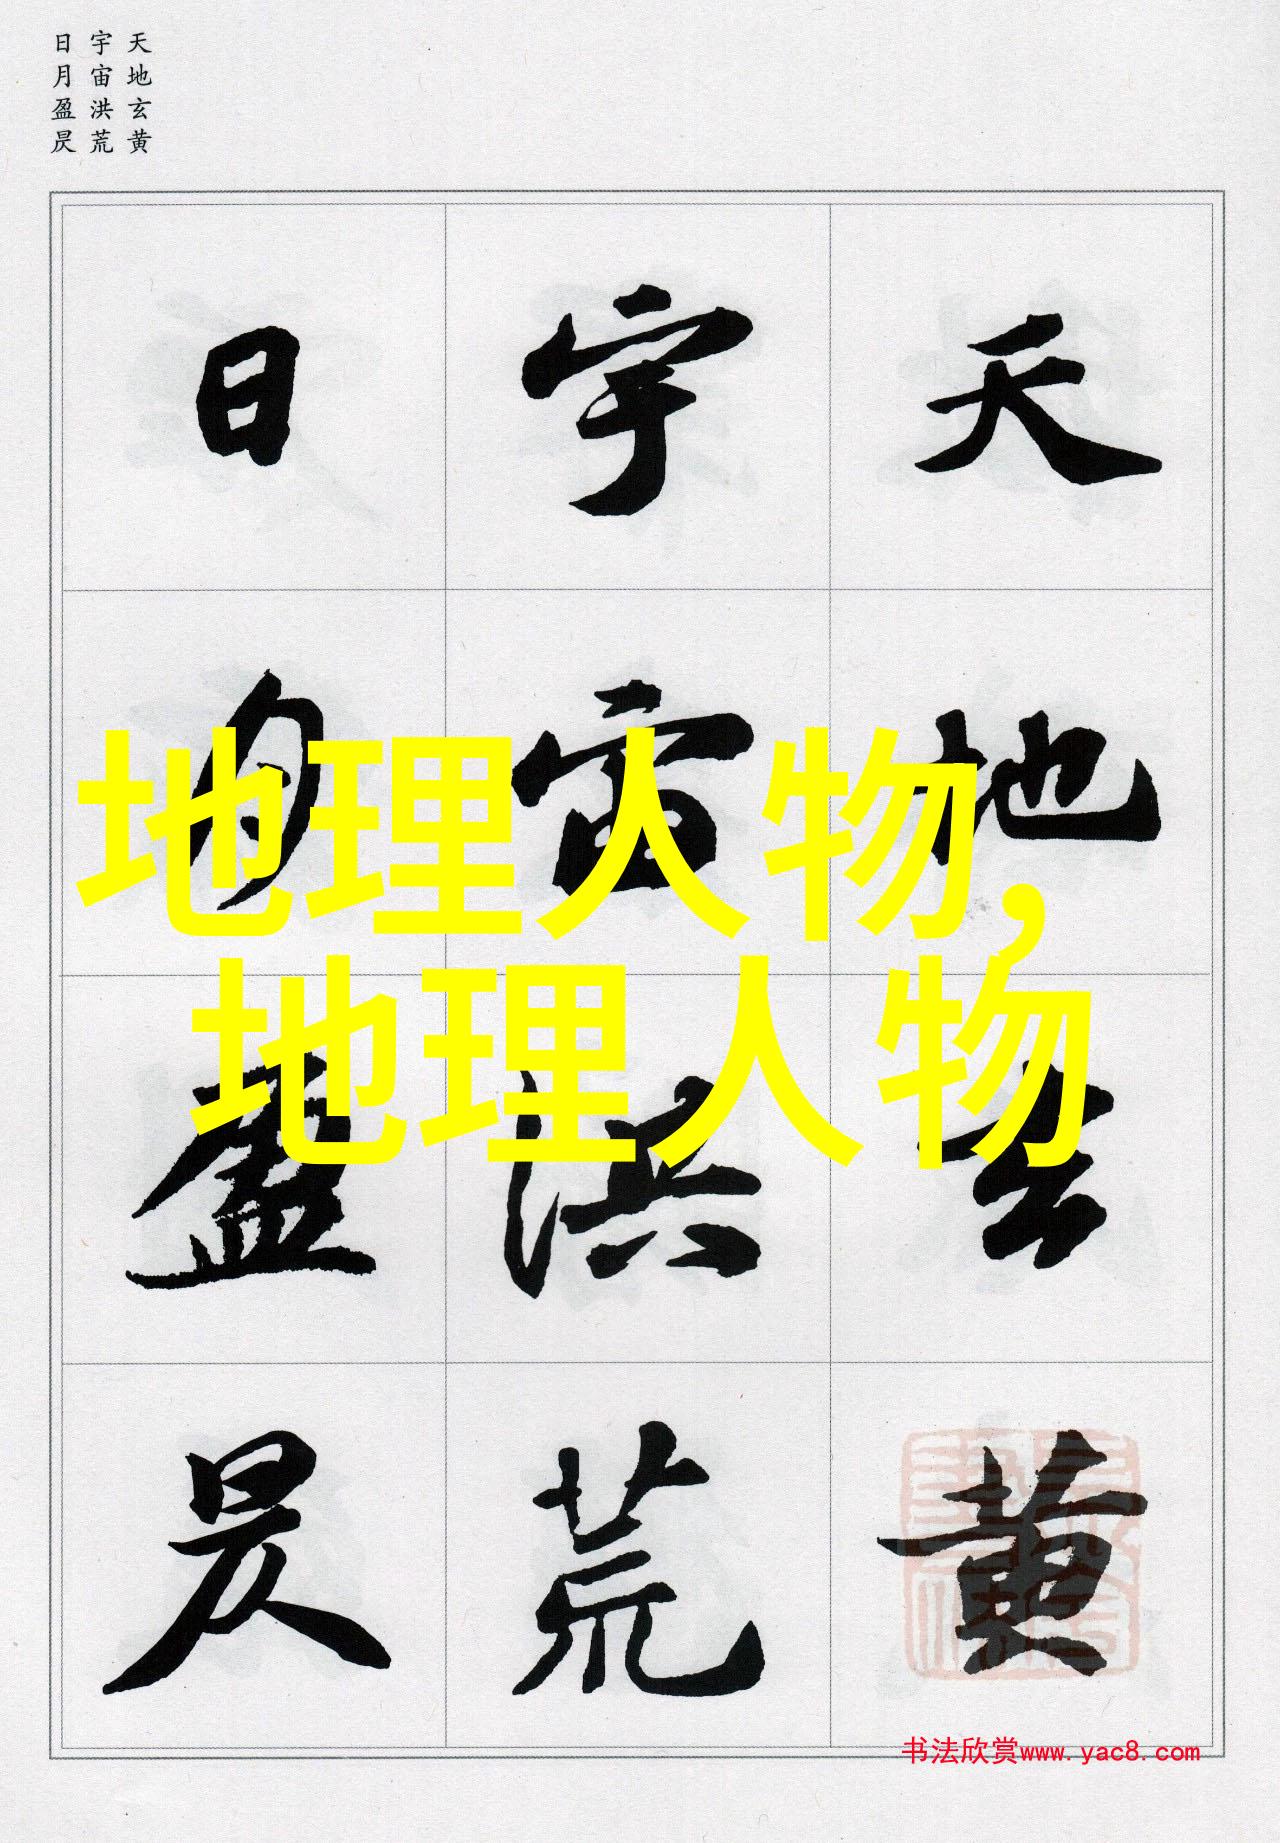 天地玄黄
宇宙洪荒
日月盈昃
天地玄黄
宇宙洪荒
日月盈昃
地理人物,
地理人物
书法欣赏www.yac8.com